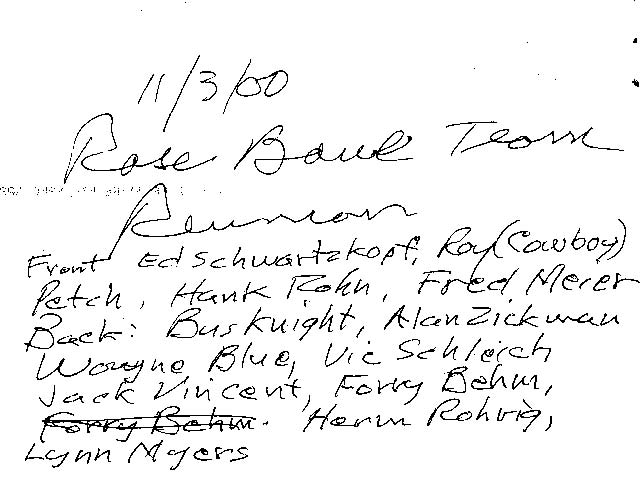 11/3/00
Rose Bowl Team
Reunion
Front Ed Schwartzkopf, Roy (Cowboy)
Petch, Hank Rohn, Fred Meier
Back: Bus Knight, Alan Zickman
Wayne Blue, Vic Schleich
Jack Vincent, Forry Behm,
Forry Behm. Herm Rohrig,
Lynn Myers